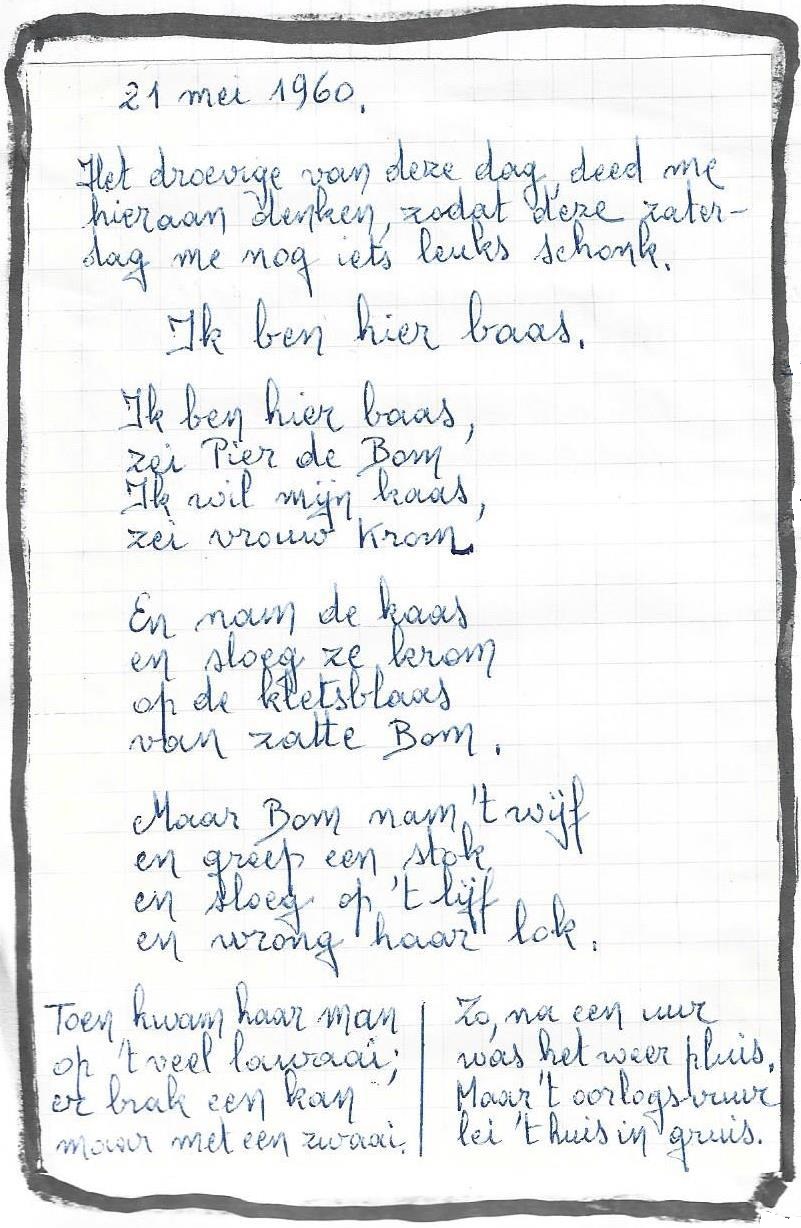 21 mei 1960.
Het droevige van deze dag, deed me
hieraan denken, zodat deze zater-
dag me nog iets leuks schonk.
Ik ben hier baas.
Ik ben hier baas,
zei Pier de Bom
Ik wil mijn kaas,
zei vrouw Krom.
En nam de kaas
en sloeg ze krom
op de kletsblaas
van zatte Bom.
Maar Bom nam 't wijf
en greep een stok
en sloeg op 't lijf
en wrong haar lok.
Toen kwam haar man
op 't veel lawaai;
er brak een kan
maar met een zwaai.
Zo, na een uur
was het weer pluis.
Maar 't oorlogsvuur
lei 't huis in gruis.